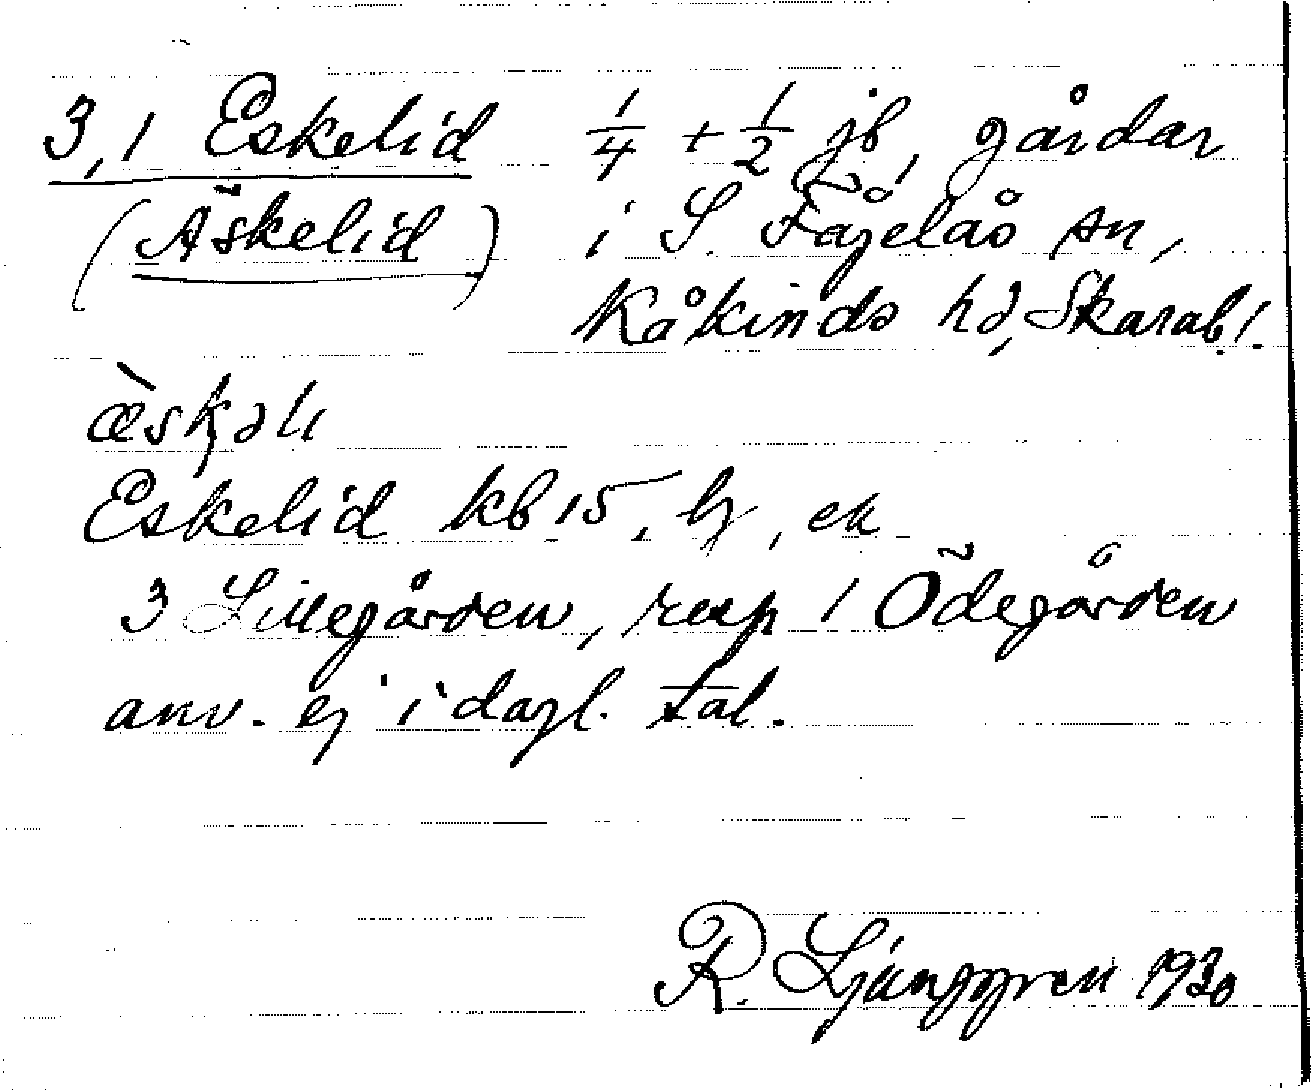 3,1 Eskelid 1/4 + 1/2 jb, gårdar
(Äskelid) i S. Fågelås sn,
Kåkinds hd, Skarab.l.
æ̀skəli
Eskelid kb 15, lj, ek
3 Lillegården, resp 1 Ödegården
anv. ej i dagl. tal.
R. Ljunggren 1930